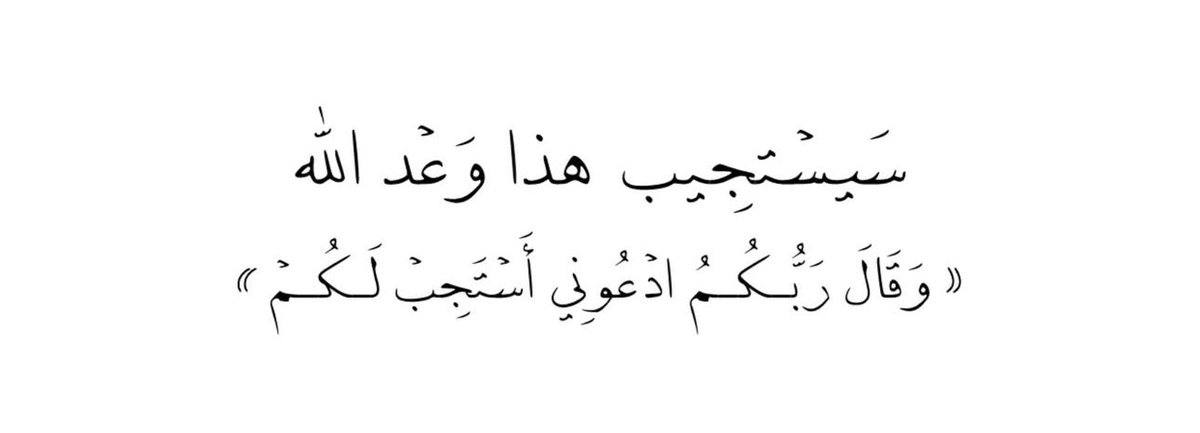 سَيسۡتجِيب هذا وَعۡد الله
« وَقَالَ رَبُّـكُـمُ ادۡعُونِي أَسۡتَجِبۡ لَـكُـمۡ »